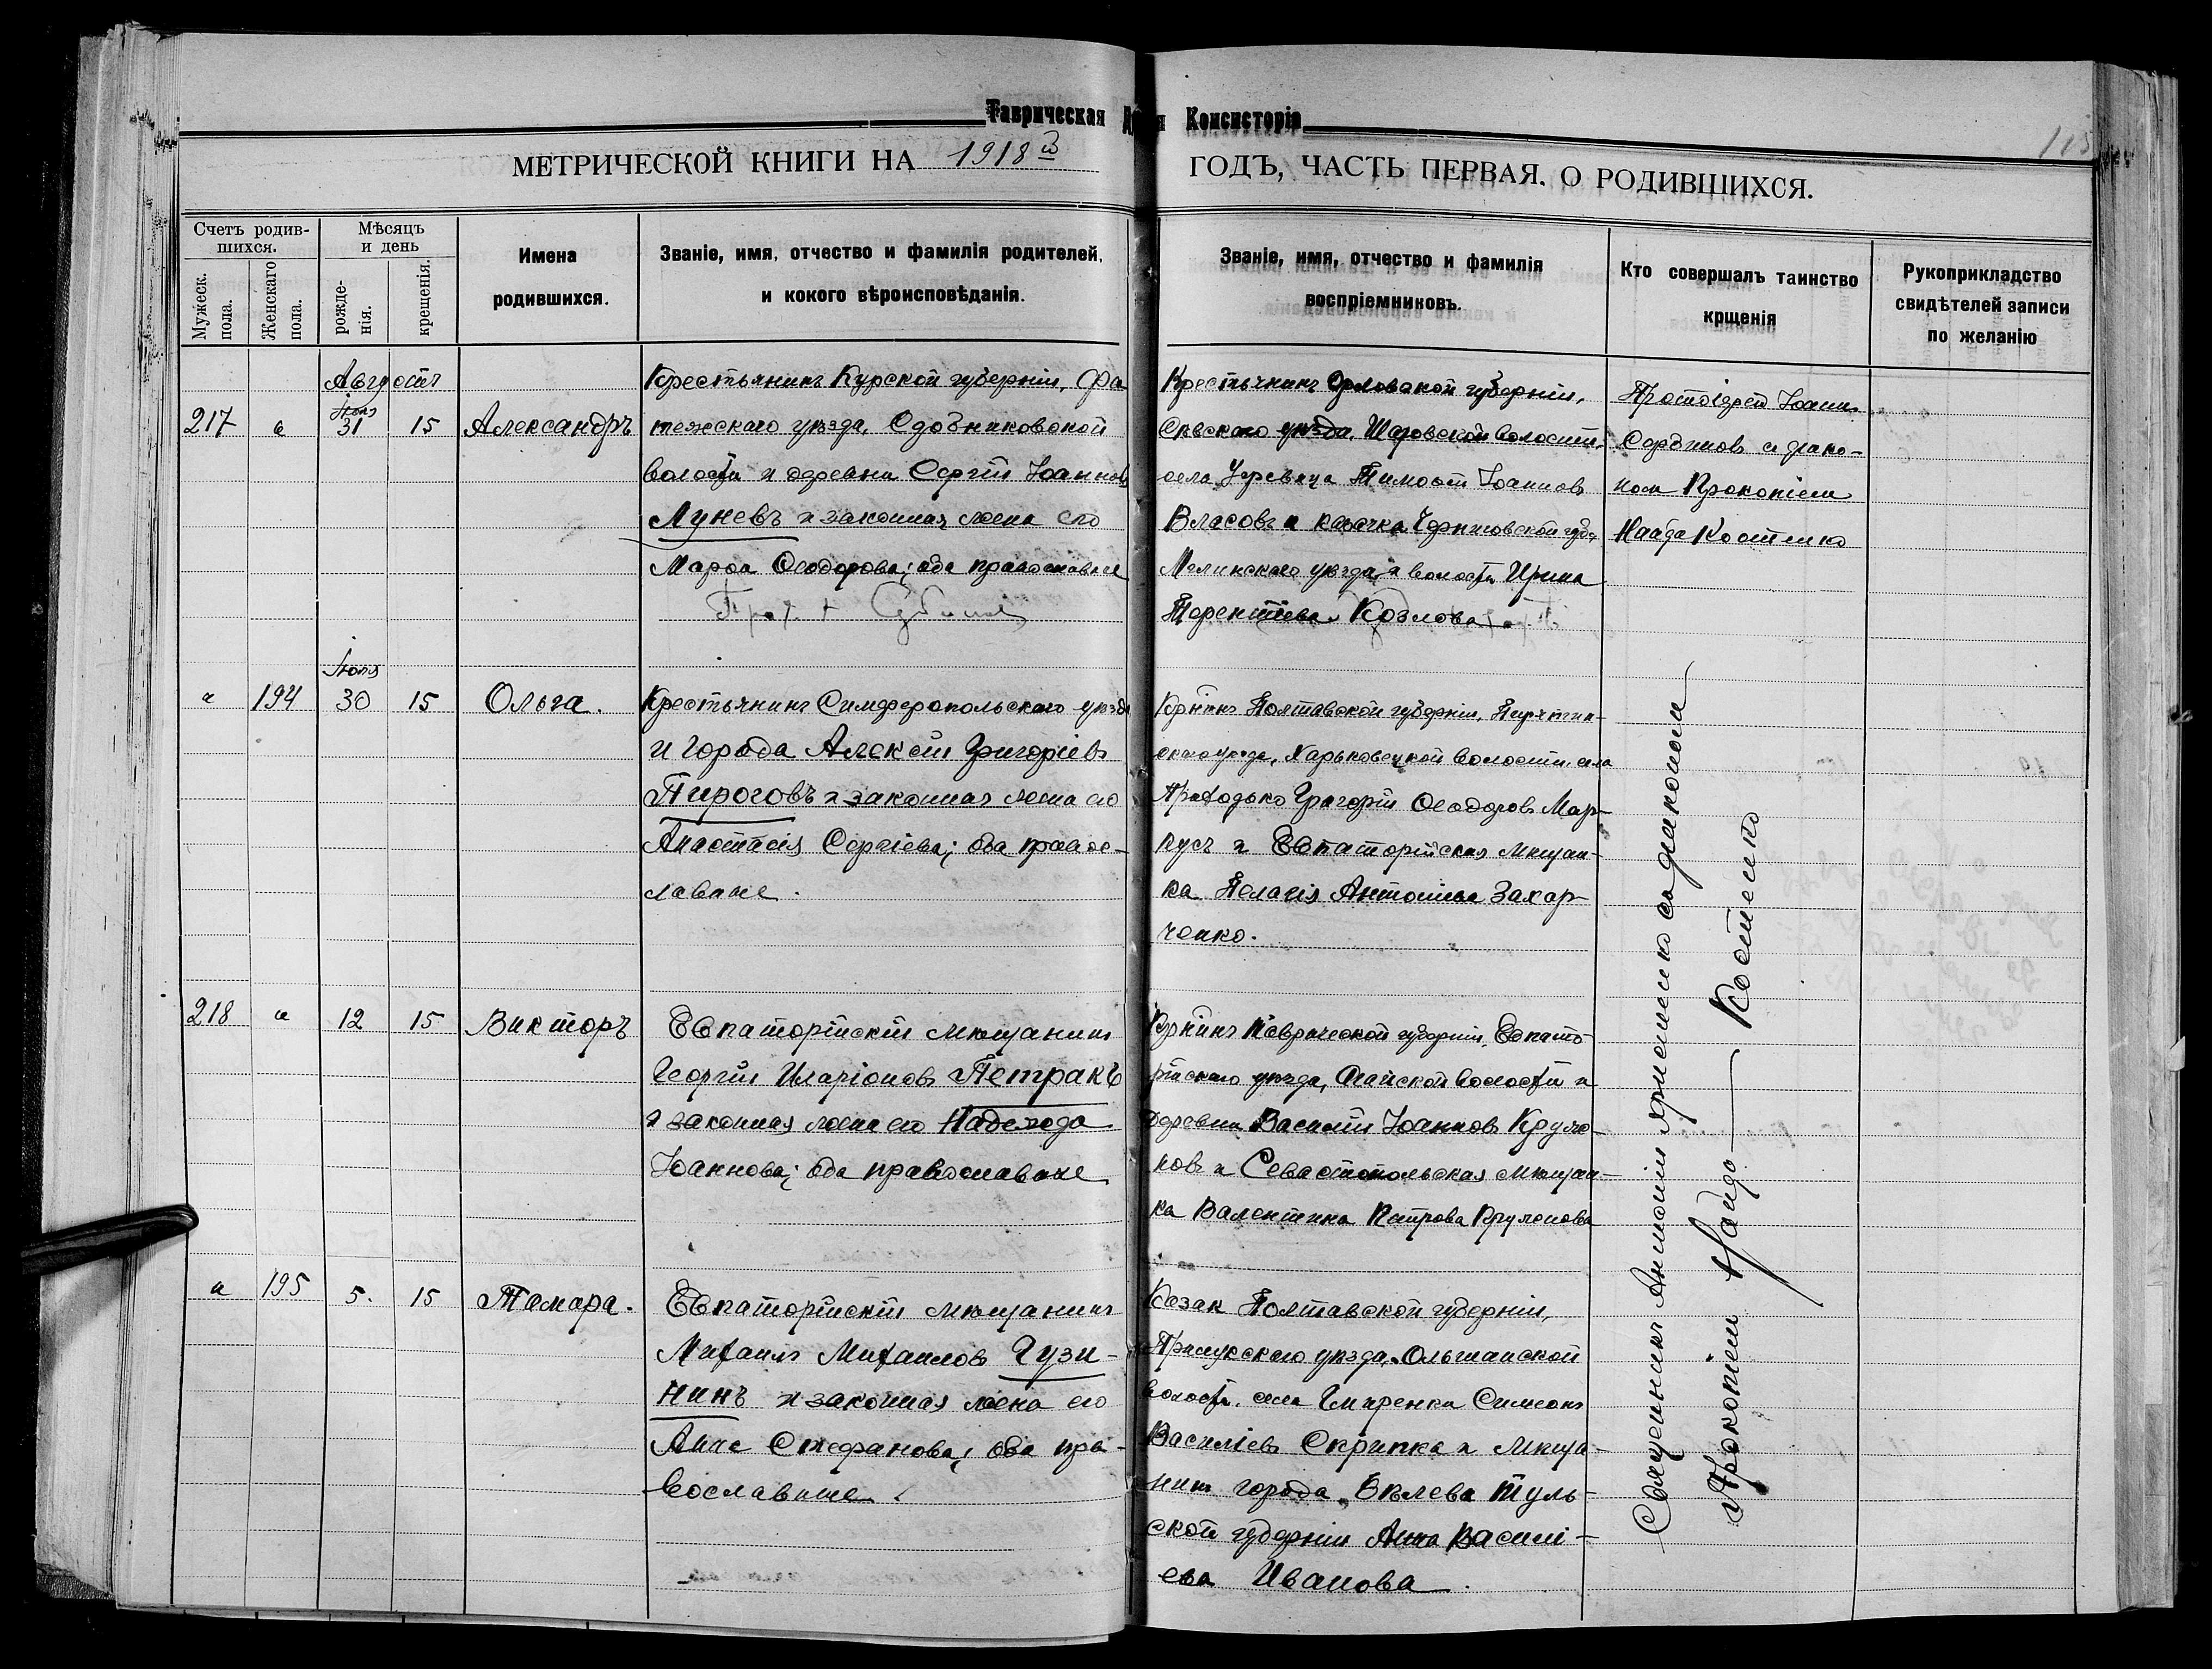 Таврическая
Консисторія
115
МЕТРИЧЕСКОЙ КНИГИ НА 1918й
ГОДЪ, ЧАСТЬ ПЕРВАЯ, О РОДИВШИХСЯ.
Счетъ родив-
шихся.
Мужеск.
пола.
Женскаго
пола.
Мѣсяцъ
и день
рожде-
нія.
крещенія.
Имена
родившихся.
Званіе, имя, отчество и фамилія родителей,
и кокого вѣроисповѣданія.
Званіе, имя, отчество и фамилія
воспріемниковъ.
Кто совершалъ таинство
крщенія
Рукоприкладство
свидѣтелей записи
по желанію
Августъ
217
Іюля
31
15
Александръ
Крестьянинъ Курской губерніи, Фа-
тежскаго уѣзда,
волости и деревни Сергій Іоанновъ
Луневъ и законная жена его
Марѳа Ѳеодорова; оба православные
Крестьянинъ Орловской губерніи,
Сѣвскаго уѣзда, Шаровской волости,
села Тимоѳей Іоанновъ
Власовъ и казачка Черниговской губ.
Мглинскаго уѣзда и волости Ирина
Терентіева Козлова
Протоіерей Іоаннъ
Сербиновъ съ діако-
ном Прокопіем
Найда Костенко
194
Іюля
30
15
Ольга.
Крестьянинъ Симферопольскаго уѣзда
и города Алексѣй Григоріевъ
Пироговъ и законная жена его
Анастасія Сергіева; оба правос-
лавные.
Кр-нинъ Полтавской губерніи, Пирятин-
скаго уѣзда, Харьковецкой волости, села
Приходько Григорій Ѳеодоров Мар-
кусъ и Евпаторійская мѣщан-
ка Пелагія Антоніева Захар-
ченко.
218
12
15
Викторъ
Евпаторійскій мѣщанинъ
Георгій Иларіоновъ Петракъ
и законная жена его Надежда
Іоаннова; оба православные
Кр-нинъ Таврической губерніи, Евпато-
рійскаго уѣзда, Сакской волости и
деревни Василій Іоаннов Кругло-
ковъ и Севастопольская мѣщан-
ка Валентина Петрова
195
5.
15
Тамара.
Евпаторійскій мѣщанинъ
Михаилъ Михаилов Гузи-
нинъ и законная жена его
Анна Стефанова; оба пра-
вославные.
Казак Полтавской губерніи,
Прилукскаго уѣзда, Ольшанской
волости, села Гмиренки Симеонъ
Василіевъ Скрипка и мѣща-
нин города Бѣлева Туль-
ской губерніи Анна Василі-
ева Иванова.
Священникъ съ діакономъ
Прокопіем Найда — Костенко